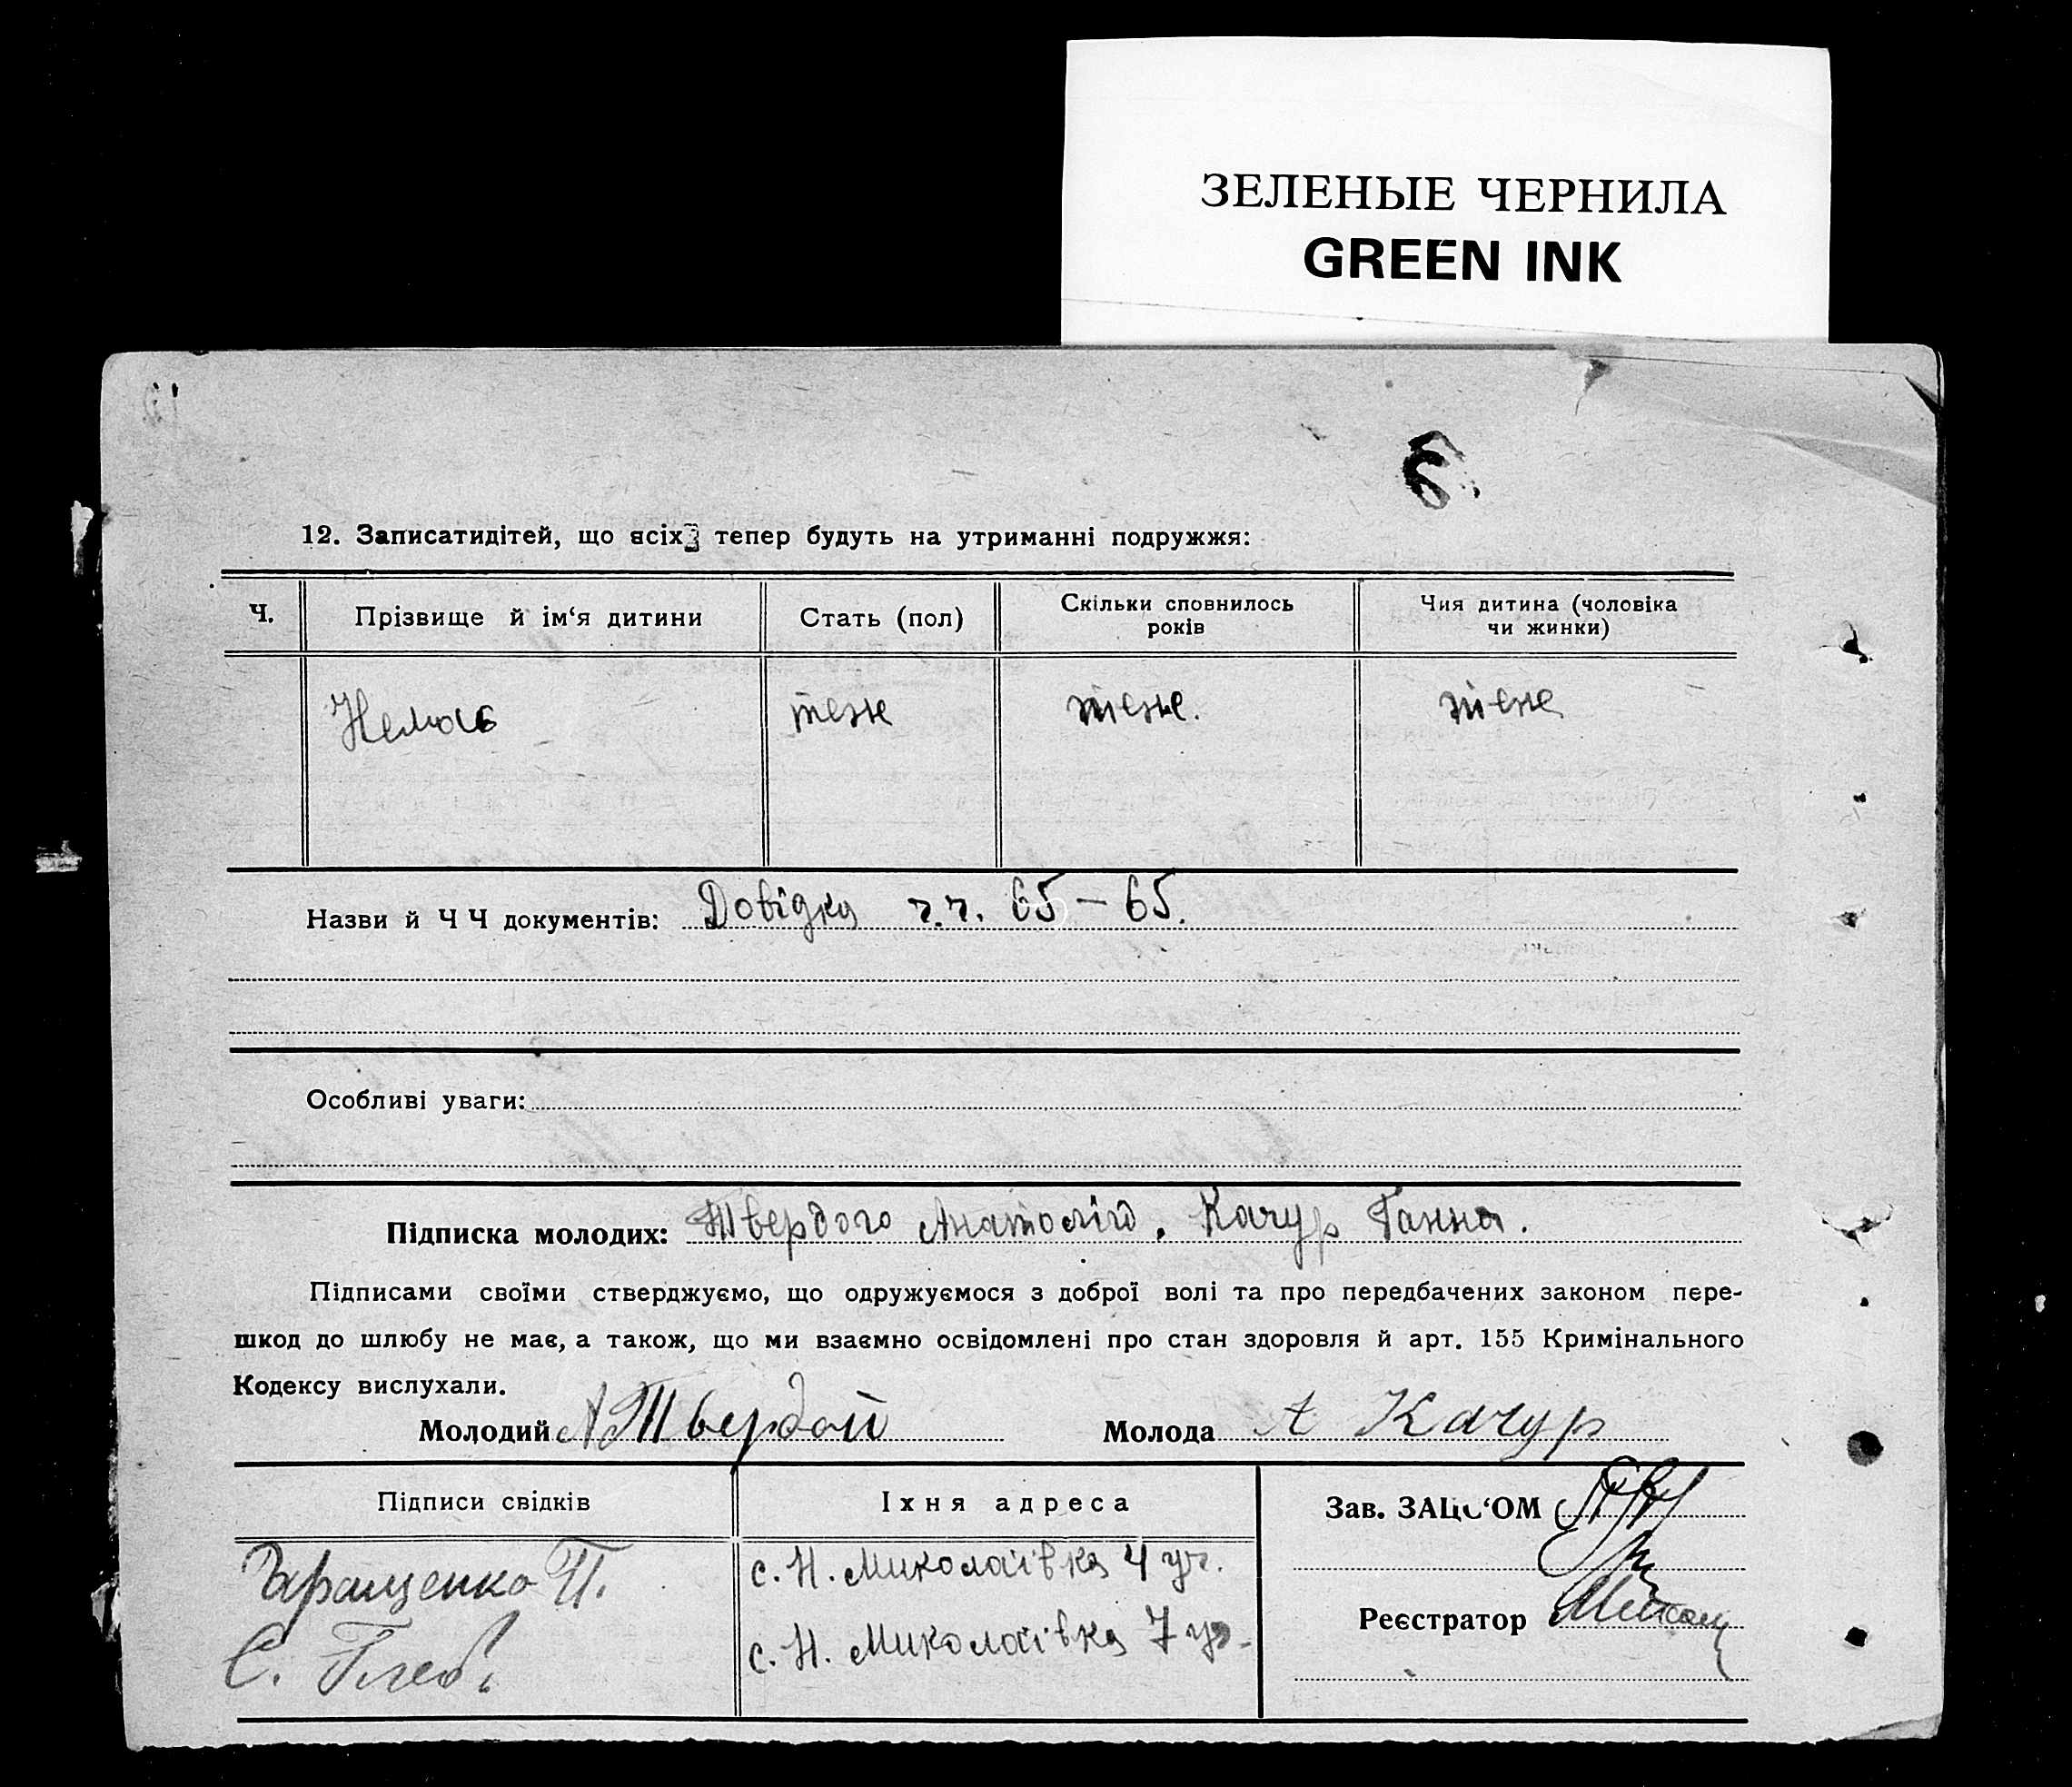 ЗЕЛЕНЫЕ ЧЕРНИЛА
GREEN INK
6
12. Записатидітей, що всіх тепер будуть на утриманні подружжя:
Ч. Прізвище й ім‘я дитини Стать (пол) Скільки сповнилось років Чия дитина (чоловіка чи жинки)
Немає теж теж. теж
Назви й Ч Ч документів: Довідка ч.ч. 65 – 65.
Особливі уваги:
Підписка молодих: Твердого Анатолія, Качур Ганна.
Підписами своїми стверджуємо, що одружуємося з доброї волі та про передбачених законом пере-
шкод до шлюбу не має, а також, що ми взаємно освідомлені про стан здоровля й арт. 155 Кримінального
Кодексу вислухали.
Молодий А Твердой Молода А Качур
Підписи свідків Їхня адреса Зав. ЗАЦС‘ОМ
Таращенко П. с. Н. Миколаївка 4 уч.
Реєстратор
С. Глеб. с. Н. Миколаївка 7 уч.